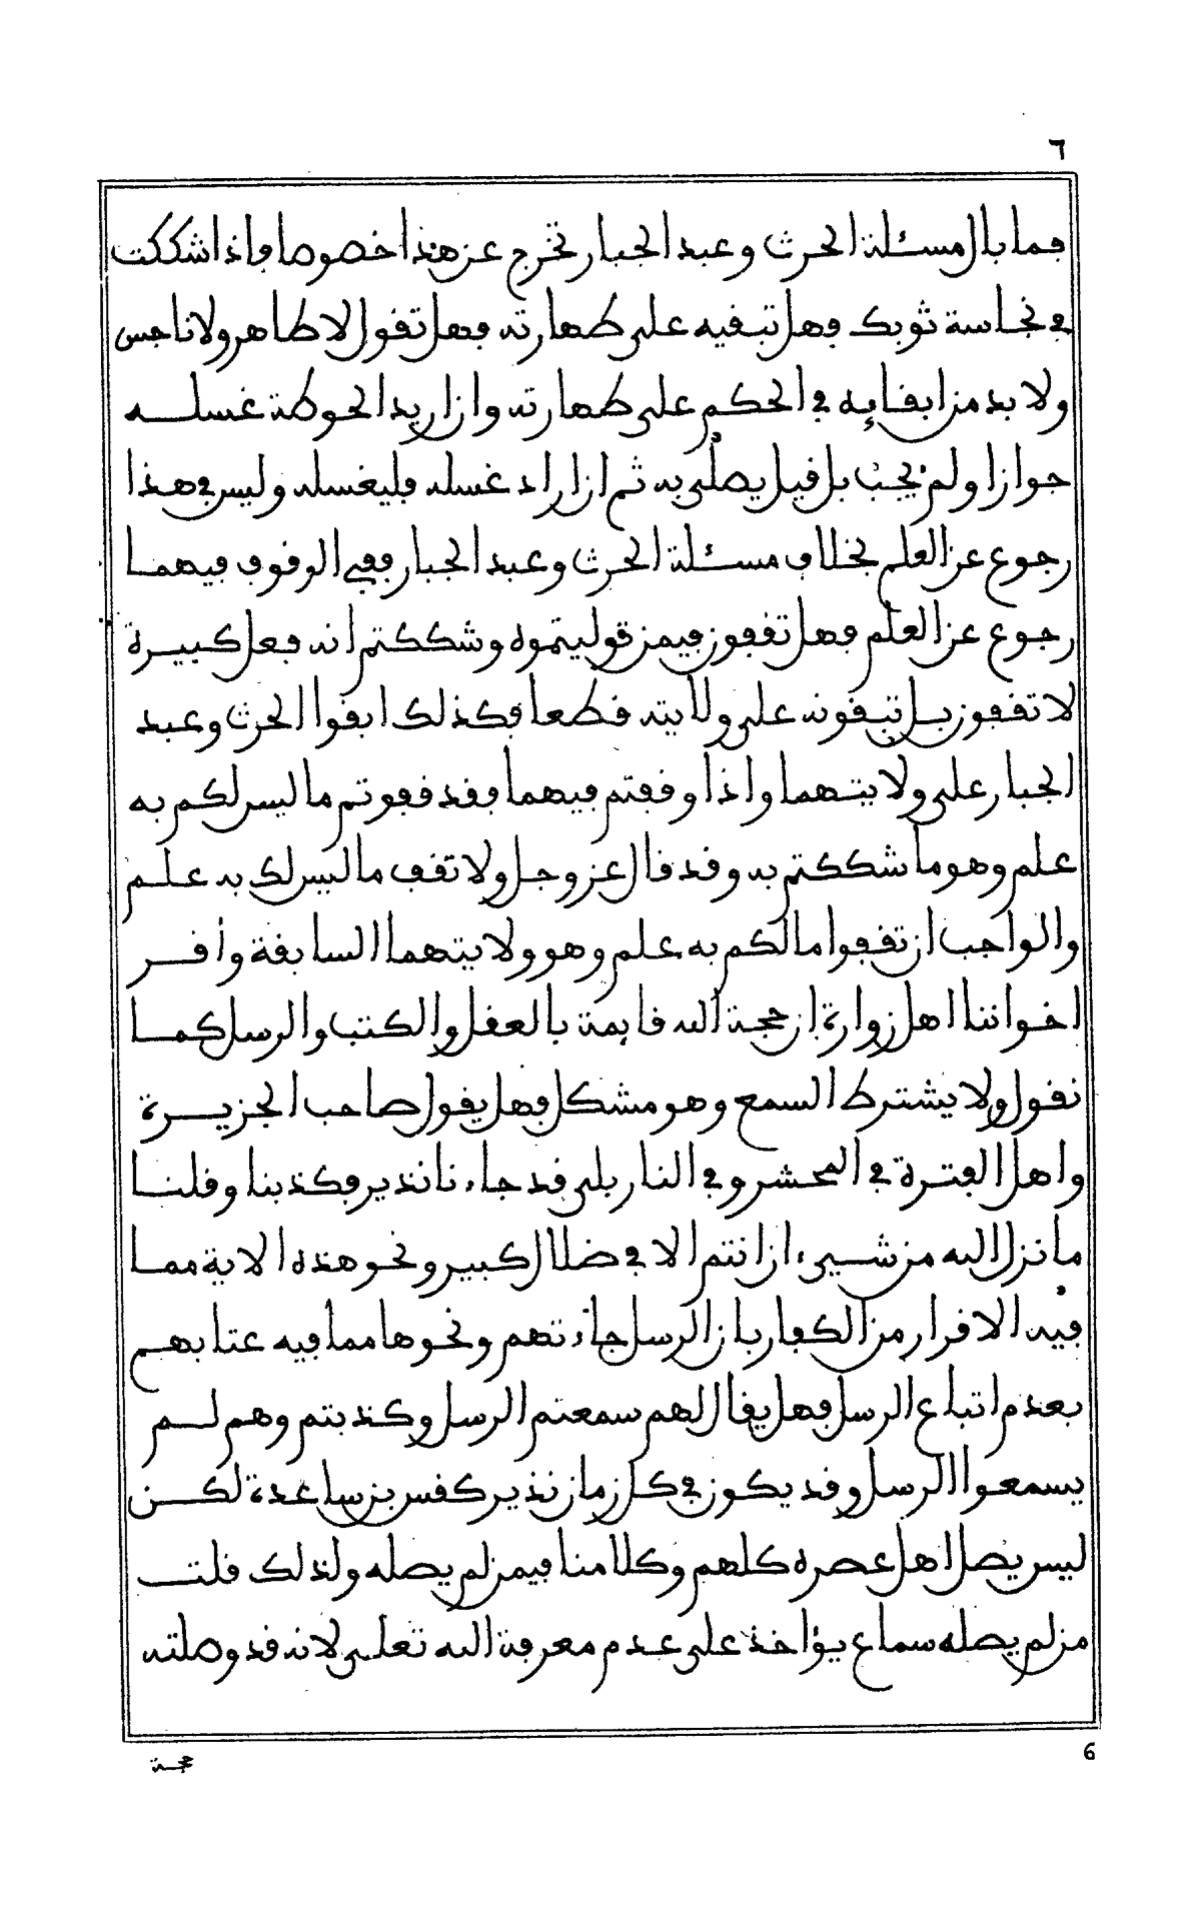 ٦
فما بال مسئلة الحرث وعبد الجبار تخرج عن هذا خصوصا واذا شككت
في نجاسة ثوبك فهل تبقيه على طهارته فهل تقول لا طاهر ولا ناجس
ولا بد من ابقائه في الحكم على طهارته وان اريد الحوطة غسله
جوازا ولم يجب بل قيل يصلى به ثم ان اراد غسله فليغسله وليس في هذا
رجوع عن العلم بخلاف مسئلة الحرث وعبد الجبار ففي الوقوف فيهما
رجوع عن العلم فهل تقفون فيمن قوليتموه وشككتم انه فعل كبيرة
لا تقفون بل تبقونه على ولايته قطعا فكذلك ابقوا الحرث وعبد
الجبار على ولايتهما واذا وقفتم فيهما فقد قفوتم ما ليس لكم به
علم وهو ما شككتم به وقد قال عز وجل ولا تقف ما ليس لك به علم
والواجب ان تقفوا ما لكم به علم وهو ولايتهما السابقة وأقر
اخواننا اهل زوارة ان حجة الله قائمة بالعقل والكتب والرسل كما
نقول ولا يشترط السمع وهو مشكل فهل يقول صاحب الجزيرة
واهل الفترة في المحشر وفي النار بلى قد جاءنا نذير فكذبنا وقلنا
ما نزل الله من شيء ان انتم الا في ضلال كبير ونحو هذه الاية مما
فيه الاقرار من الكفار بان الرسل جاءتهم ونحوها مما فيه عتابهم
بعدم اتباع الرسل فهل يقال لهم سمعتم الرسل وكذبتم وهم لم
يسمعوا الرسل وقد يكون في كل زمان نذير كقس بن ساعدة لكن
ليس يصل اهل عصره كلهم وكلامنا فيمن لم يصله ولذلك قلت
من لم يصله سماع يؤاخذ على عدم معرفة الله تعلى لانه قد وصلته
حجة
6